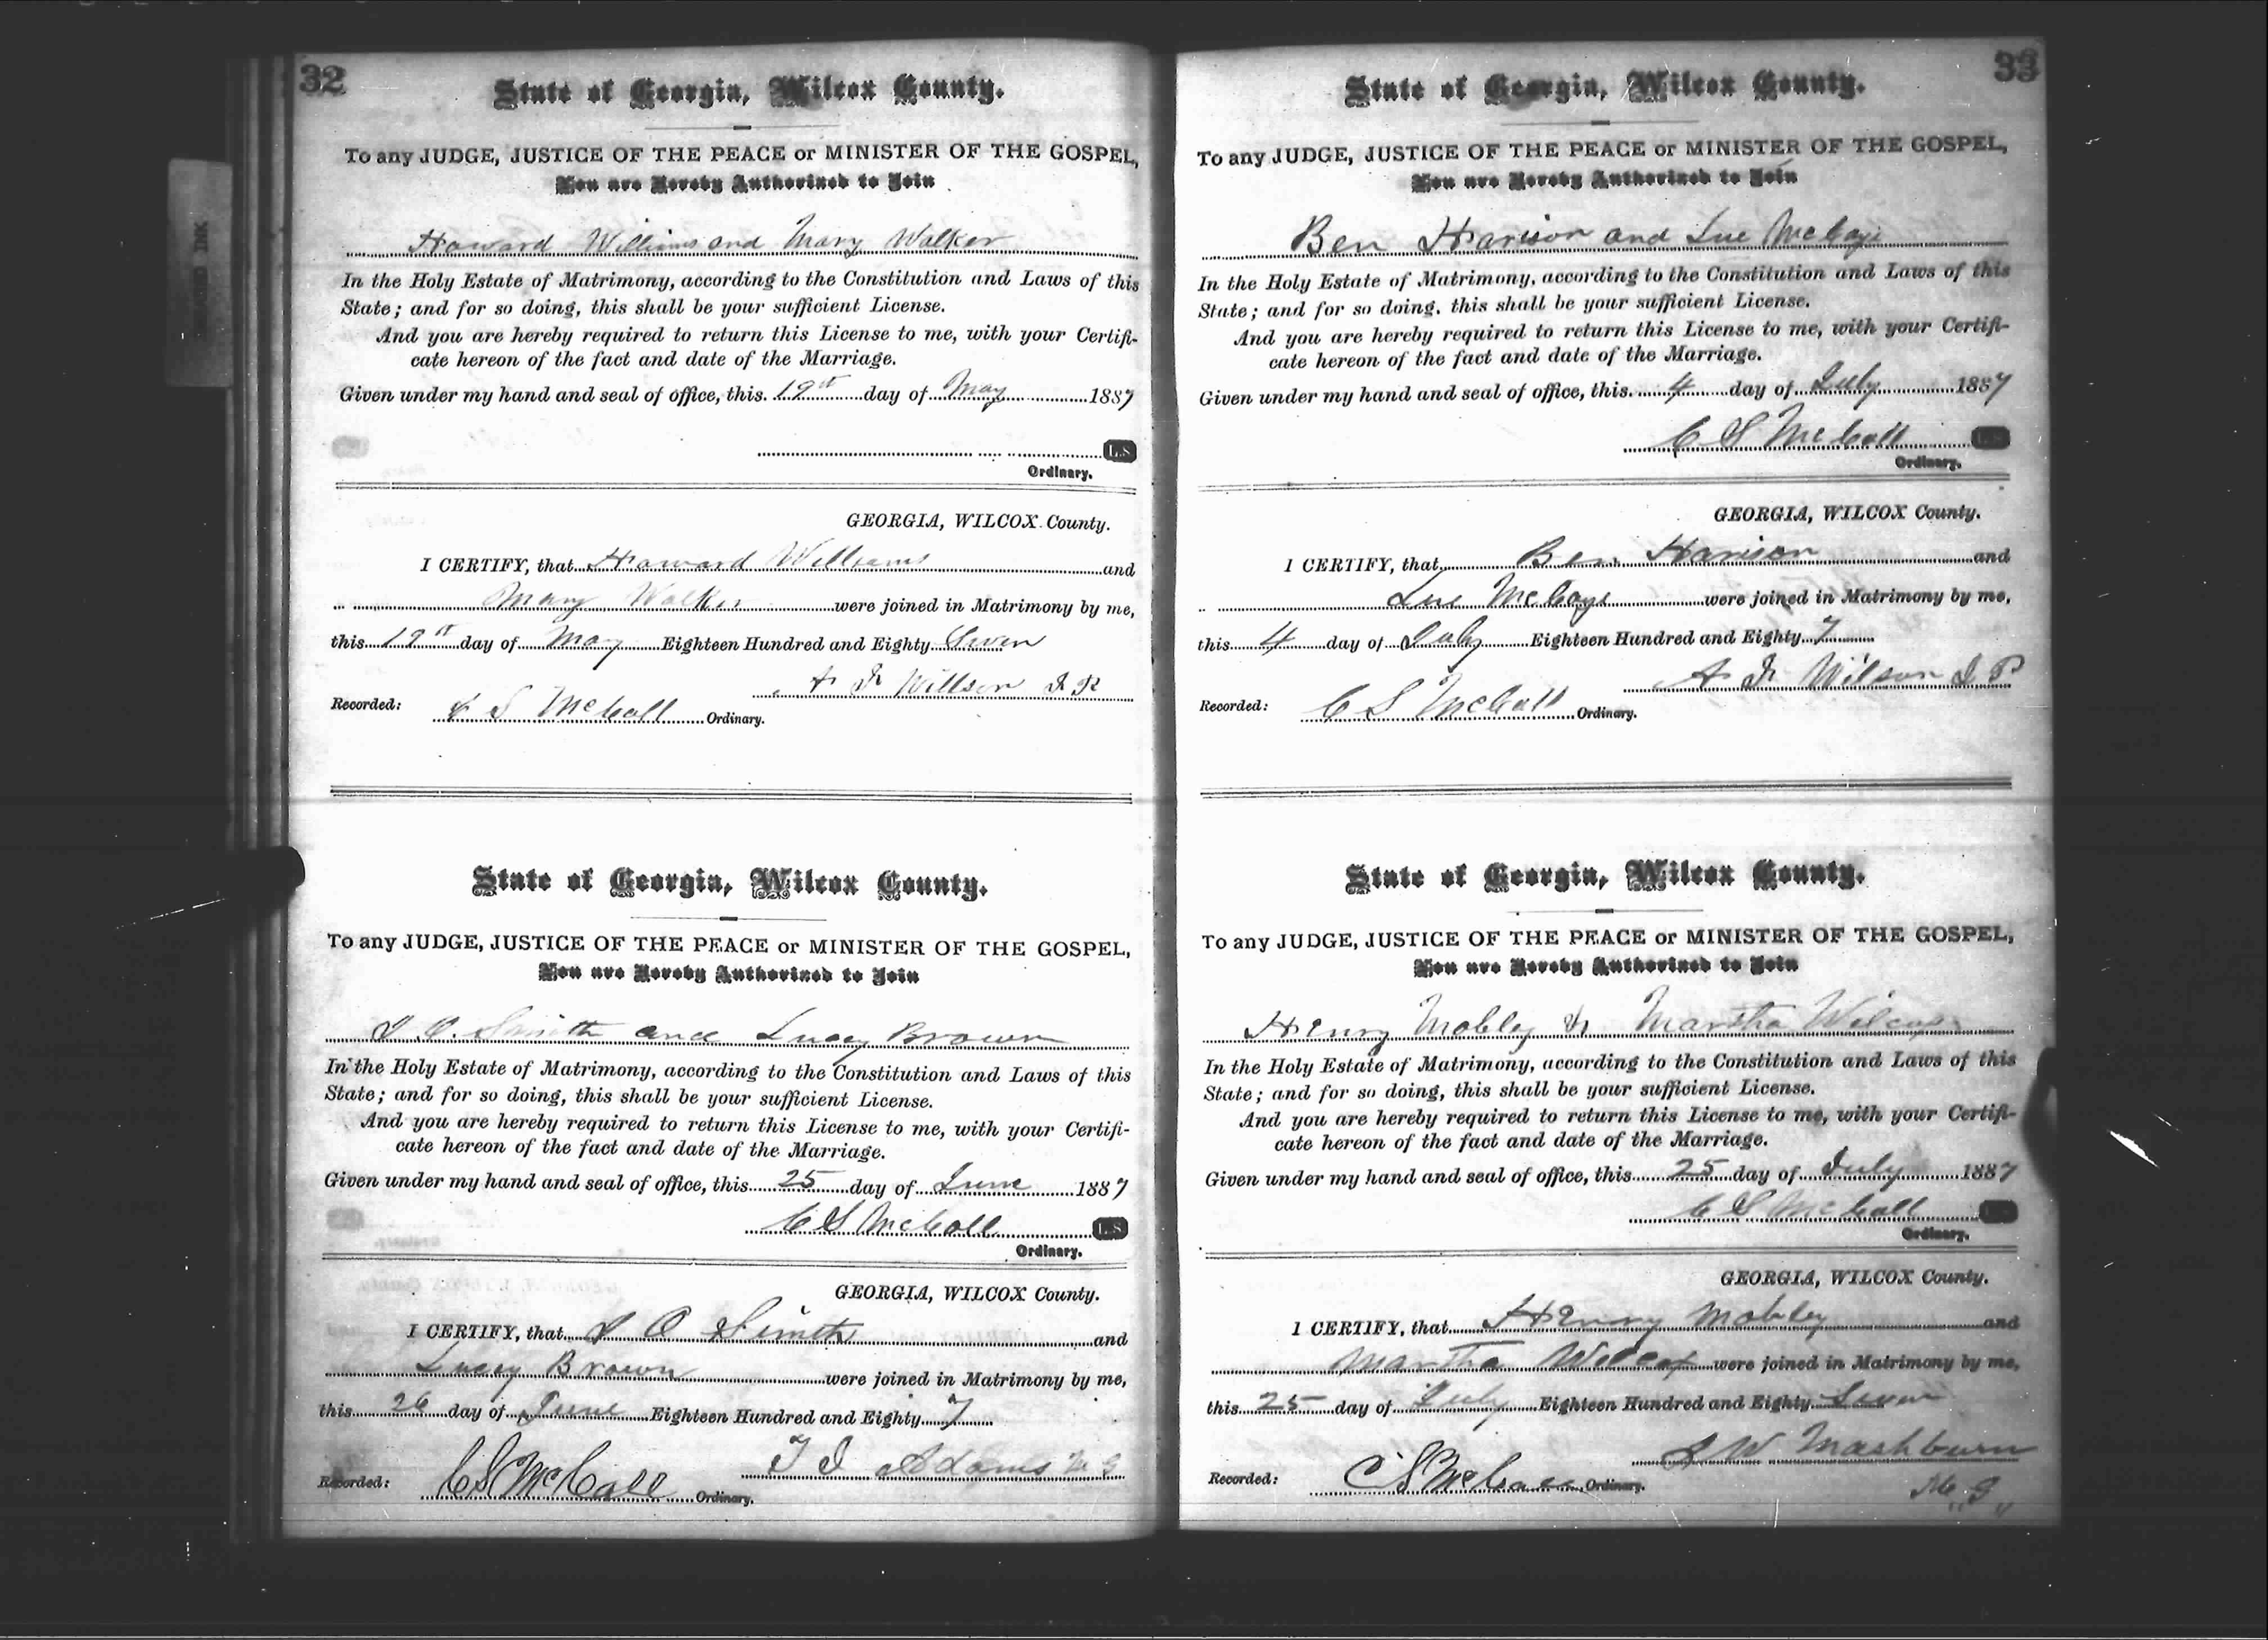 32
State of Georgia, Wilcox County.
To any JUDGE, JUSTICE OF THE PEACE or MINISTER OF THE GOSPEL,
You are Hereby Authorized to Join
Howard Williams and Mary Walker
In the Holy Estate of Matrimony, according to the Constitution and Laws of this
State; and for so doing, this shall be your sufficient License.
And you are hereby required to return this License to me, with your Certifi-
cate hereon of the fact and date of the Marriage.
Given under my hand and seal of office, this 19th day of May 1887
L.S
Ordinary.
GEORGIA, WILCOX County.
I CERTIFY, that Howard Williams and
Mary Walker were joined in Matrimony by me,
this 19th day of May Eighteen Hundred and Eighty Seven
Willson
Recorded: S McCall Ordinary.
State of Georgia, Wilcox County.
To any JUDGE, JUSTICE OF THE PEACE or MINISTER OF THE GOSPEL,
You are Hereby Authorized to Join
Smith and Lucey Brown
In the Holy Estate of Matrimony, according to the Constitution and Laws of this
State; and for so doing, this shall be your sufficient License.
And you are hereby required to return this License to me, with your Certifi-
cate hereon of the fact and date of the Marriage.
Given under my hand and seal of office, this 25 day of June 1887
C S McCall L.S
Ordinary.
GEORGIA, WILCOX County.
I CERTIFY, that Smith and
Lucey Brown were joined in Matrimony by me,
this 26 day of June Eighteen Hundred and Eighty 7
Adams M G
Recorded: C S McCall Ordinary.
33
State of Georgia, Wilcox County.
To any JUDGE, JUSTICE OF THE PEACE or MINISTER OF THE GOSPEL,
You are Hereby Authorized to Join
Ben Harison and Lue McCoye
In the Holy Estate of Matrimony, according to the Constitution and Laws of this
State; and for so doing, this shall be your sufficient License.
And you are hereby required to return this License to me, with your Certifi-
cate hereon of the fact and date of the Marriage.
Given under my hand and seal of office, this 4 day of July 1887
C S McCall L.S
Ordinary.
GEORGIA, WILCOX County.
I CERTIFY, that Ben Harison and
Lue McCoye were joined in Matrimony by me,
this 4 day of July Eighteen Hundred and Eighty 7
Wilson J P
Recorded: C S McCall Ordinary.
State of Georgia, Wilcox County.
To any JUDGE, JUSTICE OF THE PEACE or MINISTER OF THE GOSPEL,
You are Hereby Authorized to Join
Henry Mobley & Martha Wilcox
In the Holy Estate of Matrimony, according to the Constitution and Laws of this
State; and for so doing, this shall be your sufficient License.
And you are hereby required to return this License to me, with your Certifi-
cate hereon of the fact and date of the Marriage.
Given under my hand and seal of office, this 25 day of July 1887
C S McCall
Ordinary.
GEORGIA, WILCOX County.
I CERTIFY, that Henry Mobley and
Martha Wilcox were joined in Matrimony by me,
this 25 day of July Eighteen Hundred and Eighty Seven
W Mashburn
M,,G,,
Recorded: C S McCall Ordinary.